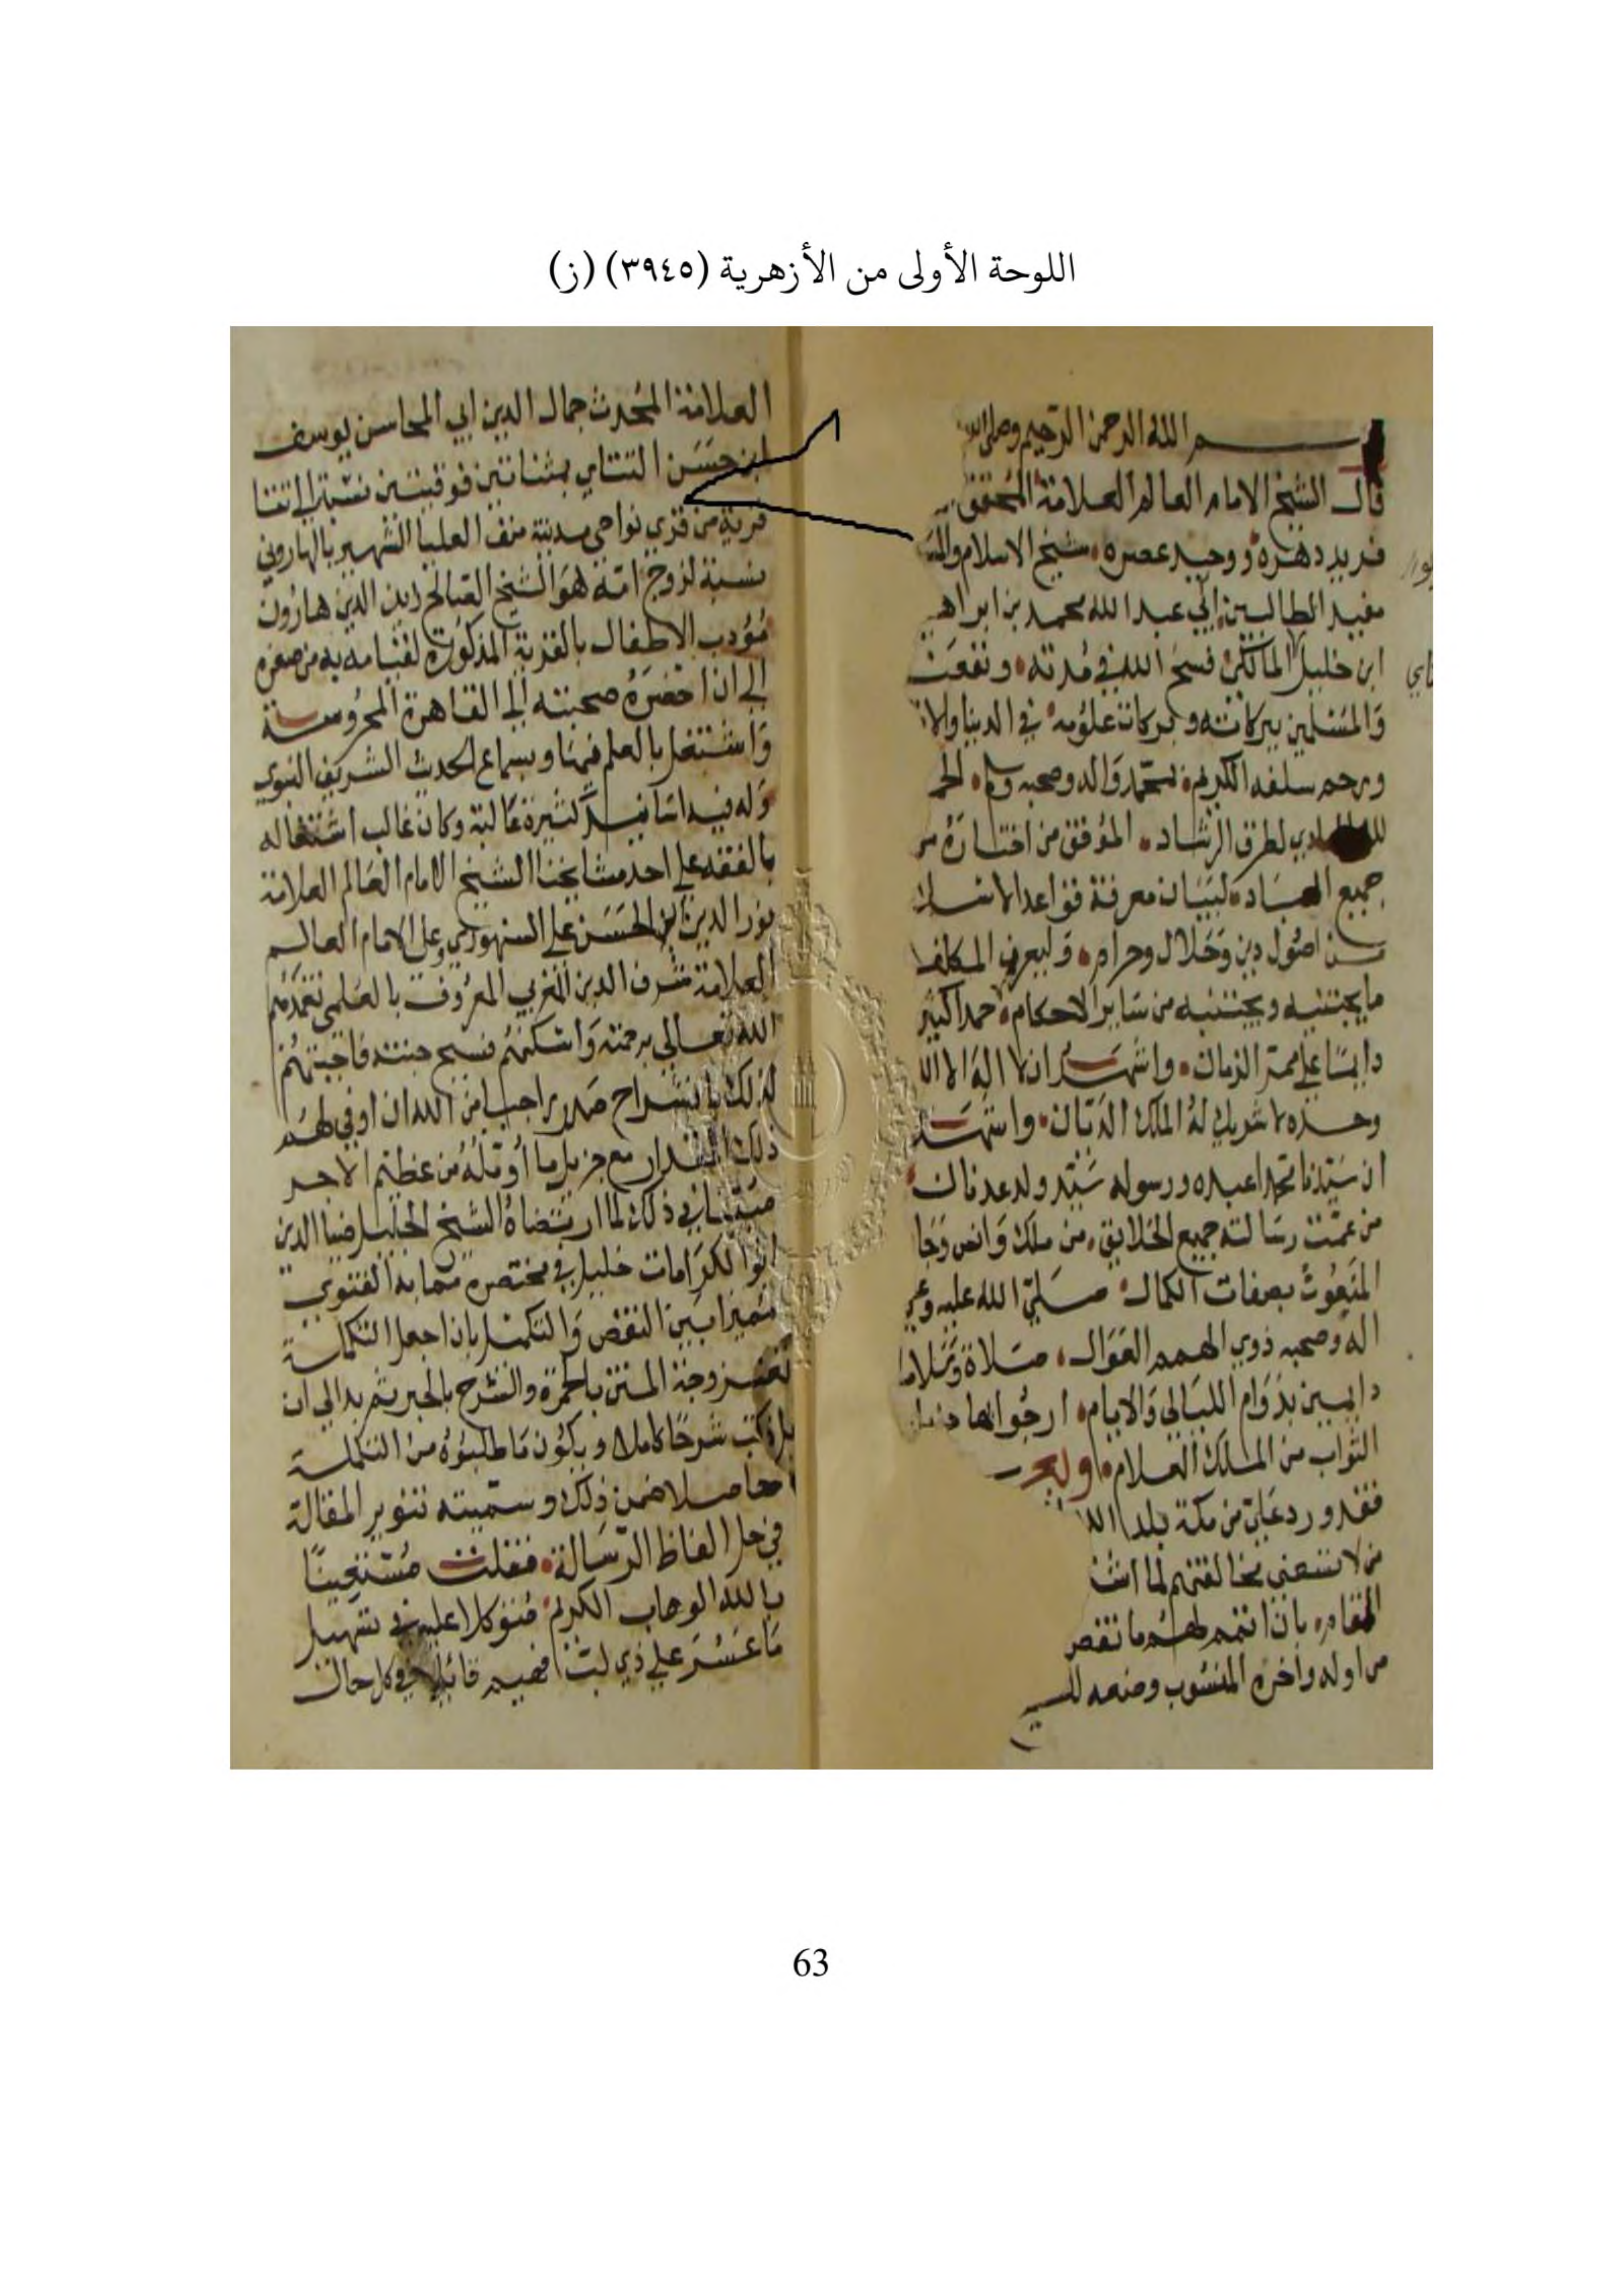 اللوحة الأولى من الأزهرية (٣٩٤٥) (ز)
بسم الله الرحمن الرحيم وصلى الله
قال الشيخ الامام العالم العلامة المحقق
فريد دهره ووحيد عصره شيخ الاسلام
مفيد الطالبين ابي عبد الله محمد بن ابراهيم
ابن خليل المالكي فسح الله في مدته ونفعنا
والمسلمين ببركاته وبركات علومه في الدنيا
ورحم سلفه الكريم بمحمد واله وصحبه وسلم الحمد
لله الهادي لطرق الرشاد الموفق من اختاره من
جميع العباد لبيان معرفة قواعد الاسلام
من اصول دين وحلال وحرام وليعرف المكلف
ما يجتنيه ويجتنبه من ساير الاحكام حمدا كثيرا
دايما على ممر الزمان واشهد ان لا اله الا الله
وحده لا شريك له الملك الديان واشهد
ان سيدنا محمدا عبده ورسوله سيد ولد عدنان
من عمت رسالته جميع الخلايق من ملك وانس وجان
المنعوت بصفات الكمال صلى الله عليه وعلى
اله وصحبه ذوي الهمم العوال صلاة وسلاما
دايمين بدوام الليالي والايام ارجوا بها
الثواب من الملك العلام وبعد
فقد ورد علي من مكة بلد الله
من لا تسعني مخالفتهم لما
المقام بان اتمم لهم ما نقص
من اوله واخره المنسوب وضعه
العلامة المحدث جمال الدين ابي المحاسن يوسف
ابن حسن التتاي بمثناتين فوقيتين نسبة الى تتا
قرية من قري نواحي مدينة منف العليا الشهير بالهاروني
نسبة لزوج امه هو الشيخ الصالح زين الدين هارون
مؤدب الاطفال بالقرية المذكورة لقيامه به من صغره
الى ان احضره صحبته الى القاهرة المحروسة
واشتغل بالعلم فيها وبسماع الحديث الشريف النبوي
وله فيه اسانيد كثيرة عالية وكان غالب اشتغاله
بالفقه على احد مشايخنا الشيخ الامام العالم العلامة
نور الدين ابي الحسن علي السنهوري وعلى الامام العالم
العلامة شرف الدين المغربي المعروف بالعلمي تغمدهم
الله تعالى برحمته واسكنهم فسيح جنته فاجبتهم
لذلك بانشراح صدر راجيا من الله ان اوفي لهم
ذلك المقدار مع جزيل ما أؤمله من عظيم الاجر
مقتفيا في ذلك لما ارتضاه الشيخ الجليل ضيا الدين
ابو الكرامات خليل في مختصره مما به الفتوي
مميزا بين النقص والتكميل بان اجعل التكملة
ممزوجة المتن بالحمرة والشرح بالحبر ثم بدا لي ان
اكتب شرحا كاملا ويكون ما طلبوه من التكملة
حاصلا ضمن ذلك وسميته تنوير المقالة
في حل الفاظ الرسالة فقلت مستعينا
بالله الوهاب الكريم متوكلا عليه في تسهيل
ما عسر على ذي لب فهيم قائلا في كل حال
63